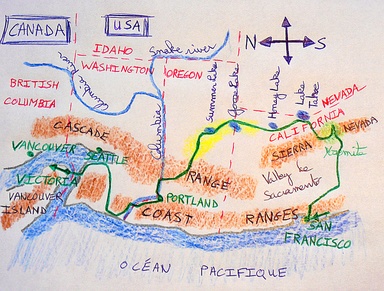 CANADA
USA
N S
IDAHO
Snake river
WASHINGTON
OREGON
Columbia River
BRITISH
COLUMBIA
Columbia
Summer Lake
Goose Lake
Honey Lake
Lake
Tahoe
NEVADA
CALIFORNIA
CASCADE
RANGE
SIERRA NEVADA
Yosemite
VANCOUVER
SEATTLE
VICTORIA
VANCOUVER
ISLAND
Valley
Sacramento
PORTLAND
COAST RANGES
SAN
FRANCISCO
OCÉAN PACIFIQUE